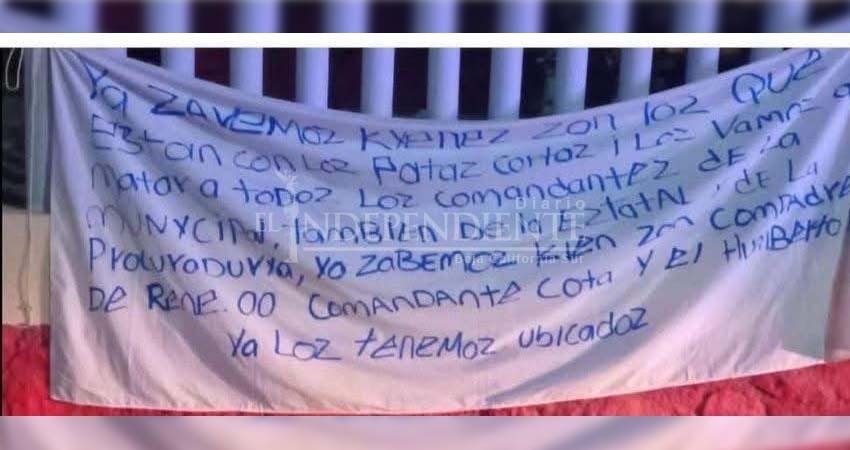 Ya ZAVEMOZ KYENEZ ZON LOZ QUE
EZTAN CON LOZ PATAZ CORTAZ i LOZ VAMOZ A
MATAR A TODOZ LOZ COMANDANTEZ DE LA
MUNYCIPAL, TAMBIEN DE LA EZTATAL, DE LA
PROCURADURYA, YA ZABEMOZ ZON COMPADRE
DE RENE.OO COMANDANTE COTA Y El HUMBERTO
Ya LOZ TENEMOZ UBICADOZ
Diario
EL INDEPENDIENTE
Baja California Sur